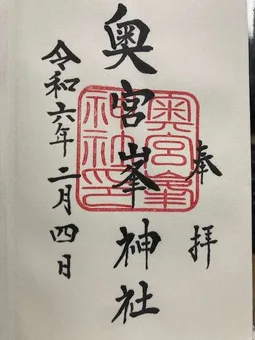 奉拝
奥宮峯神社
奥宮峯神社印
令和六年二月四日